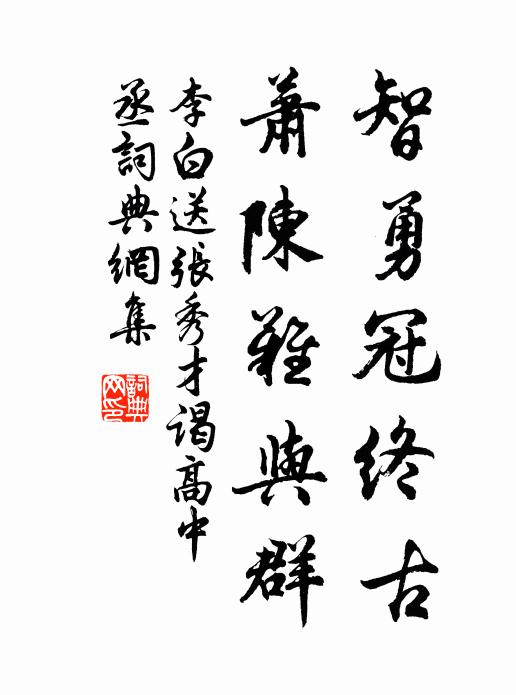 智勇冠終古
蕭陳難與群
李白送張秀才謁高中
丞詞典網集
詞典网印